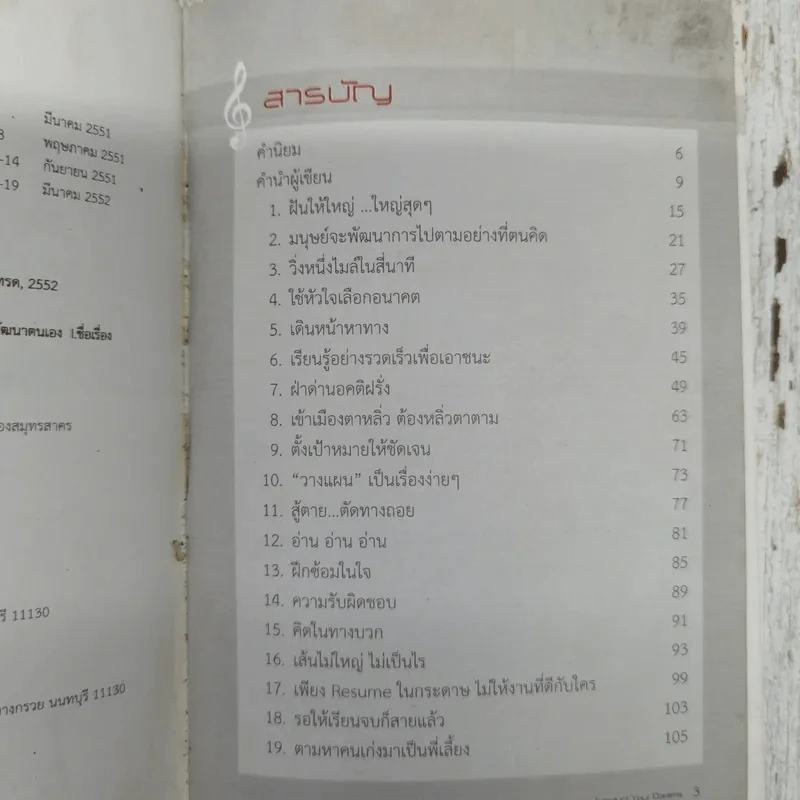 มีนาคม 2551
8 พฤษภาคม 2551
-14 กันยายน 2551
-19 มีนาคม 2552
2552
ฒนาตนเอง I.ชื่อเรื่อง
องสมุทรสาคร
รี 11130
างกรวย นนทบุรี 11130
สารบัญ
คำนิยม 6
คำนำผู้เขียน 9
1. ฝันให้ใหญ่ ...ใหญ่สุดๆ 15
2. มนุษย์จะพัฒนาการไปตามอย่างที่ตนคิด 21
3. วิ่งหนึ่งไมล์ในสี่นาที 27
4. ใช้หัวใจเลือกอนาคต 35
5. เดินหน้าหาทาง 39
6. เรียนรู้อย่างรวดเร็วเพื่อเอาชนะ 45
7. ฝ่าด่านอคติฝรั่ง 49
8. เข้าเมืองตาหลิ่ว ต้องหลิ่วตาตาม 63
9. ตั้งเป้าหมายให้ชัดเจน 71
10. “วางแผน” เป็นเรื่องง่ายๆ 73
11. สู้ตาย...ตัดทางถอย 77
12. อ่าน อ่าน อ่าน 81
13. ฝึกซ้อมในใจ 85
14. ความรับผิดชอบ 89
15. คิดในทางบวก 91
16. เส้นไม่ใหญ่ ไม่เป็นไร 93
17. เพียง Resume ในกระดาษ ไม่ให้งานที่ดีกับใคร 99
18. รอให้เรียนจบก็สายแล้ว 103
19. ตามหาคนเก่งมาเป็นพี่เลี้ยง 105
3